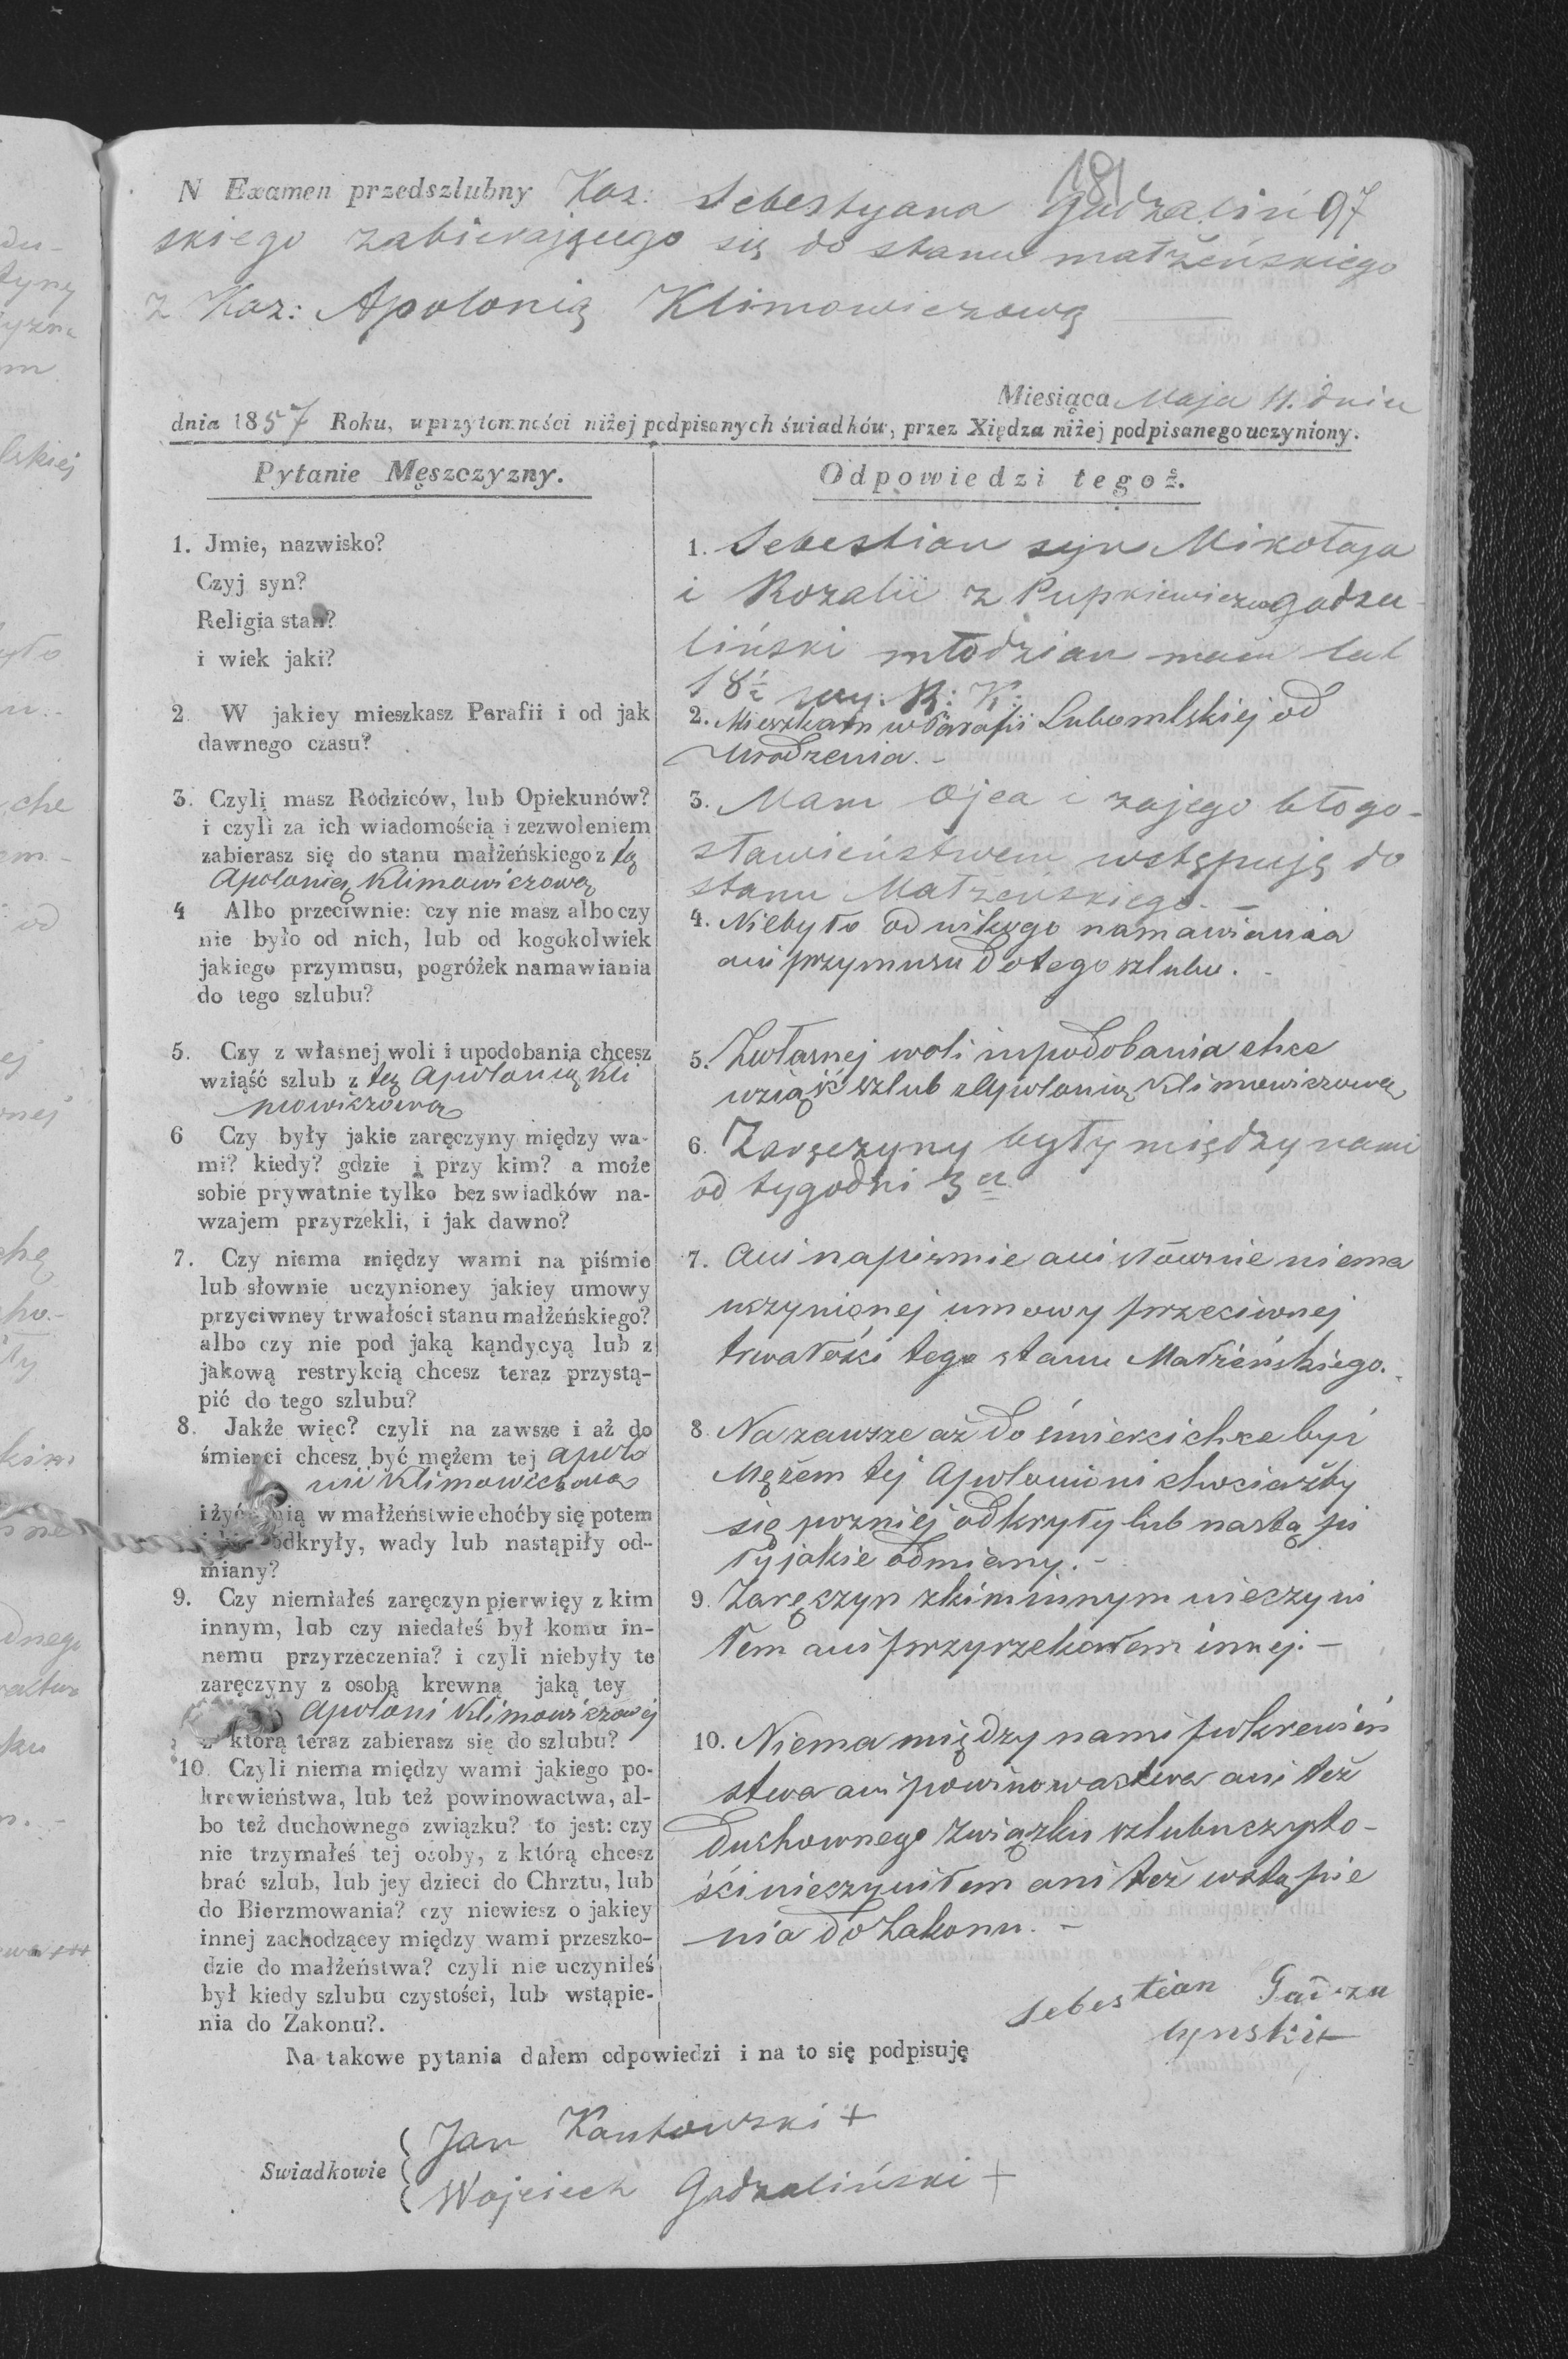 181
N Examen przedszlubny Kaz: Sebestyana Gudzaliń 97
skiego zabierającego się do stanu małżeńskiego
z Kaz: Apolonią Klimowiczową
Miesiąca Maja 11. dnia
dnia 1857 Roku, w przytomności niżej podpisanych świadków, przez Xiędza niżej podpisanego uczyniony.
Pytanie Męszczyzny.
1. Jmie, nazwisko?
Czyj syn?
Religia stan?
i wiek jaki?
2. W jakiey mieszkasz Parafii i od jak
dawnego czasu?
3. Czyli masz Rodziców, lub Opiekunów?
i czyli za ich wiadomością i zezwoleniem
zabierasz się do stanu małżeńskiego z tą
Apolonią Klimowiczową
4 Albo przeciwnie: czy nie masz albo czy
nie było od nich, lub od kogokolwiek
jakiego przymusu, pogróżek namawiania
do tego szlubu?
5. Czy z własnej woli i upodobania chcesz
wziąść szlub z tą Apolonią Kli
mowiczową
6 Czy były jakie zaręczyny między wa-
mi? kiedy? gdzie i przy kim? a może
sobie prywatnie tylko bez swiadków na-
wzajem przyrzekli, i jak dawno?
7. Czy niema między wami na piśmie
lub słownie uczynioney jakiey umowy
przyciwney trwałości stanu małżeńskiego?
albo czy nie pod jaką kąndycyą lub z
jakową restrykcią chcesz teraz przystą-
pić do tego szlubu?
8. Jakże więc? czyli na zawsze i aż do
śmierci chcesz być mężem tej Apolo
nii Klimowiczowa
i żyć nią w małżeństwie choćby się potem
odkryły, wady lub nastąpiły od-
miany?
9. Czy niemiałeś zaręczyn pierwięy z kim
innym, lub czy niedałeś był komu in-
nemu przyrzeczenia? i czyli niebyły te
zaręczyny z osobą krewną jaką tey
Apoloni Klimowiczowej
z którą teraz zabierasz się do szlubu?
10. Czyli niema między wami jakiego po-
krewieństwa, lub też powinowactwa, al-
bo też duchownego związku? to jest: czy
nie trzymałeś tej osoby, z którą chcesz
brać szlub, lub jey dzieci do Chrztu, lub
do Bierzmowania? czy niewiesz o jakiey
innej zachodzącey między wami przeszko-
dzie do małżeństwa? czyli nie uczyniłeś
był kiedy szlubu czystości, lub wstąpie-
nia do Zakonu?.
Odpowiedzi tegoż.
1. Sebestian syn Mikołaja
i Rozalii z Pupkiewiczow Gadza
liński młodzian mam lat
18½ R: K:
2. Mieszkam w Parafii Lubomlskiej od
urodzenia.-
3. Mam Ojca i zajego błogo-
sławieństwem wstępuję do
stanu Małżeńskiego.-
4. Niebyło od nikogo namawiania
ani przymusu do tego szlubu.
5. Zwłasnej woli i upodobania chce
wziąść szlub z Apolonią Klimowiczową
6. Zaręczyny były między nami
od tygodni 3ch
7. Ani napiśmie ani słownie niema
uczynionej umowy przeciwnej
trwałości tego stanu Małżeńskiego.
8. Na zawsze aż do śmierci chce być
Mężem tej Apolonioni chociażby
się pozniej odkryły lub nastąpi
ły jakie odmiany.-
9. Zaręczyn z kim innym nieczyni
łem ani przyrzekałem innej.-
10. Niema między nami pokrewień
stwa ani powinowactwa ani też
duchownego związku szlubu czysto-
ści nieczyniłem ani też wstąpie
nia do Zakonu.-
Sebestian Gadza
lynski+
Na takowe pytania dałem odpowiedzi i na to się podpisuję
Swiadkowie
Jan Kantowski +
Wojciech Gadzaliński +